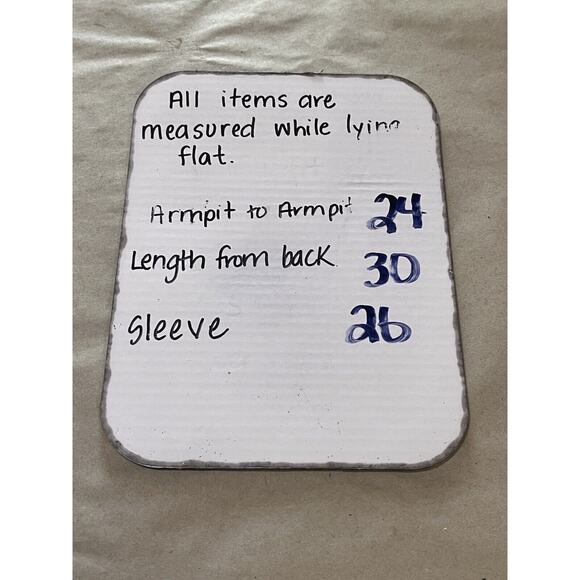 All items are
measured while lying
flat.
Armpit to Armpit 24
Length from back 30
Sleeve 26